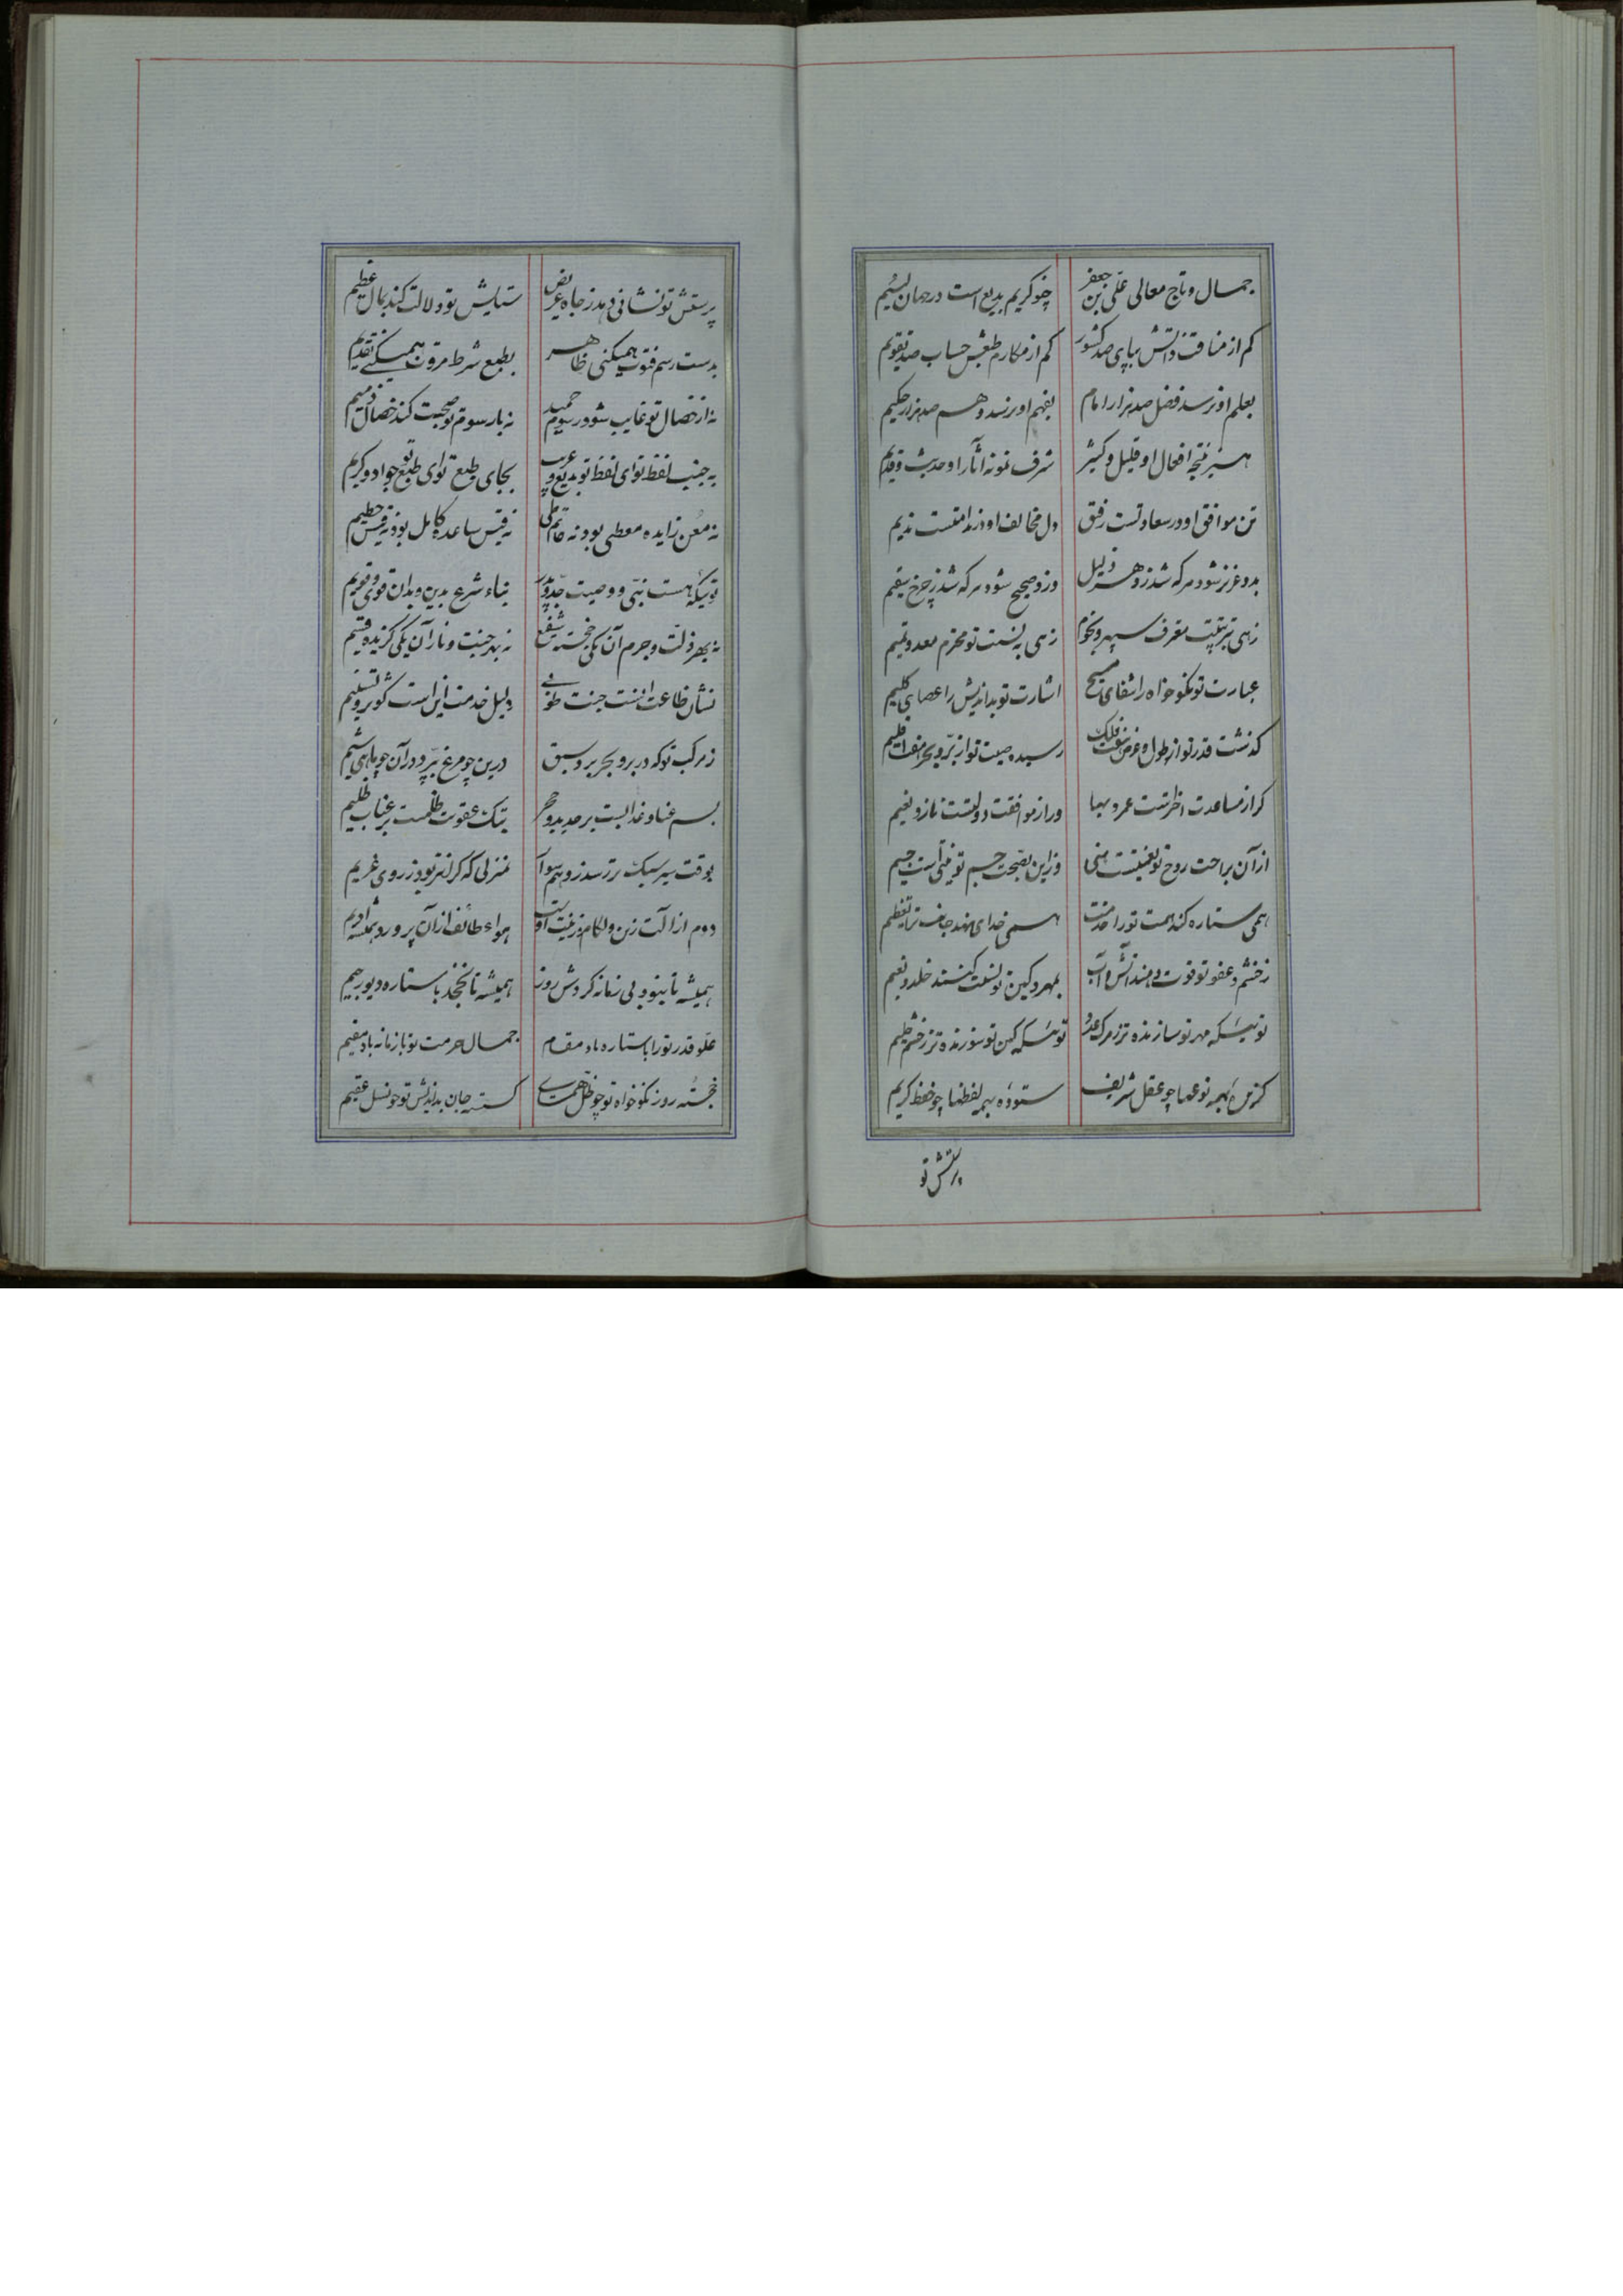 جمال و تاج معالی علی بن جعفر چو کریم بدیع است در جهان نسیم
کم از مناقب ذاتش بپای صد کشور کم از مکارم طبعش حساب صد تقویم
بعلم او نرسد فضل صد هزار امام بفهم او نرسد وهم صد هزار حکیم
هنر نتیجه افعال او قلیل و کثیر شرف نمونه آثار او حدیث و قدیم
تن موافق او در سعادتست رفیق دل مخالف او در ندامتست ندیم
بدو عزیز شود هر که شد ز دهر ذلیل وزو صحیح شود هر که شد ز چرخ سقیم
زهی بتربیتت معرف سپهر و نجوم زهی به نسبت تو محترم معد و تمیم
عبارت تو نکو خواه را شفای مسیح اشارت تو بداندیش را عصای کلیم
گذشت قدر تو از طول و عرض هفت فلک رسید صیت تو از بر و بحر هفت اقلیم
گر از مساعدت اختر تست عمر و بها ور از موافقت دولتست ناز و نعیم
از آن براحت روح تو نعمتیست هنی وزاین بصحت جسم تو منتی است جسیم
همی ستاره کند همت تو را خدمت همی خدای نهد جانب ترا تعظیم
ز خشم و عفو تو قوت دهند آتش و آب بمهر و کین تو نسبت کنند خلد و نعیم
توئیکه مهر تو سازنده تر ز مرگ عدو توئیکه کین تو سوزنده تر ز خشم حلیم
گزین بهمه نوعها چو عقل شریف ستوده بهمه لفظها چو لفظ کریم
پرستش تو
پرستش تو نشانی دهد ز جاه عریض ستایش تو دلالت کند بمال عظیم
بدست رسم فتوت همیکنی ظاهر بطبع شرط مروت همیکنی تقدیم
نه از خصال تو غایب شود رسوم حمید نه با رسوم تو صحبت کند خصال ذمیم
به جنب لفظ تو ای لفظ تو بدیع و غریب بجای طبع تو ای طبع تو جواد و کریم
نه معن زایده معطی بود نه حاتم طی نه قیس ساعده کامل بود نه قیس حطیم
توئیکه هست بنی و وصیت جد و پدر بناء شرع بدین و بدان قوی و قویم
نه بهر ذلت و جرم آن یکی خجسته شفیع نه بهر جنت و نار آن یکی گزیده قسیم
نشان طاعت انست جنت طوبی دلیل خدمت این است کوثر و تسنیم
ز مرکب تو که در بر و بحر برد سبق درین چو مرغ بپرد در آن چو ماهی شیم
بسم عنا و عذابست بر حدید و حجر بتک عقوبت ظلمست بر عقاب ظلیم
بوقت سیر سبک تر رسد ز وهم سوار بمنزلی که گرانتر بود ز روی غریم
دوم از آلت زین و لگام زینت اوست هواء طائف از آن پرورد همیشه ادیم
همیشه تا بنبود بی زمانه گردش روز همیشه تا نخجد با ستاره دیو رجیم
علو قدر تو را با ستاره باد مقام جمال حرمت تو با زمانه باد مقیم
خجسته روز نکو خواه تو چو ظل همای گسسته جان بداندیش تو چو نسل عقیم